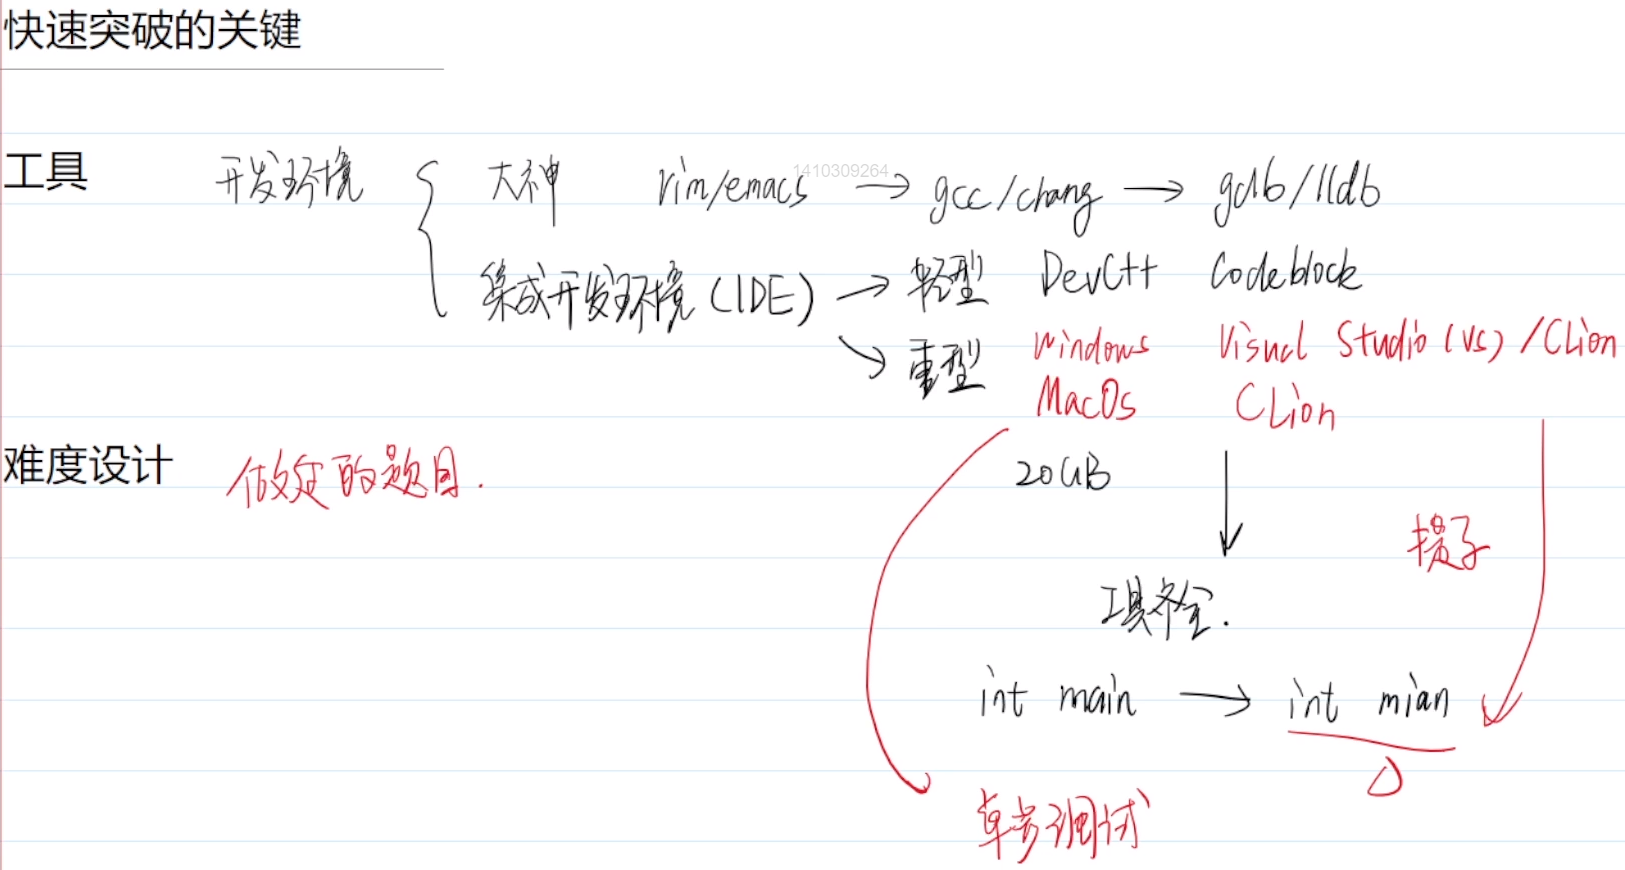 快速突破的关键
工具 开发环境 { 大神 vim/emacs → gcc/clang → gdb/lldb
1410309264
集成开发环境(IDE) → 轻型 DevC++ Codeblock
↘ 重型 Windows Visual Studio (VS) / CLion
MacOs CLion
难度设计 做定的题目.
20GB
提示
工具齐全.
int main → int mian
单步调试